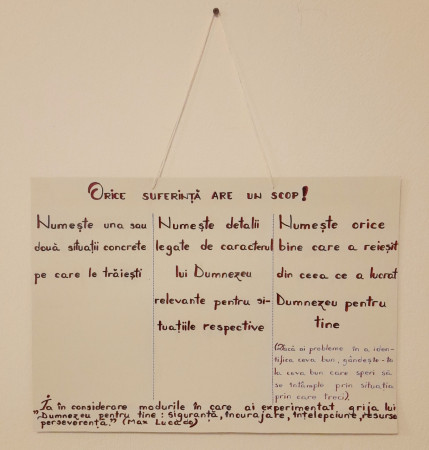 Orice suferință are un scop!
Numește una sau
două situații concrete
pe care le trăiești
Numește detalii
legate de caracterul
lui Dumnezeu
relevante pentru si-
tuațiile respective
Numește orice
bine care a reieșit
din ceea ce a lucrat
Dumnezeu pentru
tine
(Dacă ai probleme în a iden-
tifica ceva bun, gândește-te
la ceva bun care speri să
se întâmple prin situația
prin care treci).
Ia în considerare modurile în care ai experimentat grija lui
"Dumnezeu pentru tine: siguranță, încurajare, înțelepciune, resurse
perseverență." (Max Lucado)